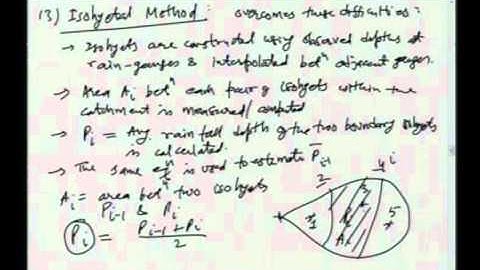 (3) Isohyetal Method: overcomes these difficulties:
→ Isohyets are constructed using observed depths at
rain-gauges & interpolated betⁿ adjacent gauges.
→ Area Ai betⁿ each pair of isohyets within the
catchment is measured/computed
→ Pi = Avg. rainfall depth of the two boundary isohyets
is calculated.
→ The same eqⁿ is used to estimate P̄
Ai = area betⁿ two isohyets
Pi-1 & Pi
Pi = Pi-1 + Pi / 2
i-1
i
2
4
1
3
5
Ai